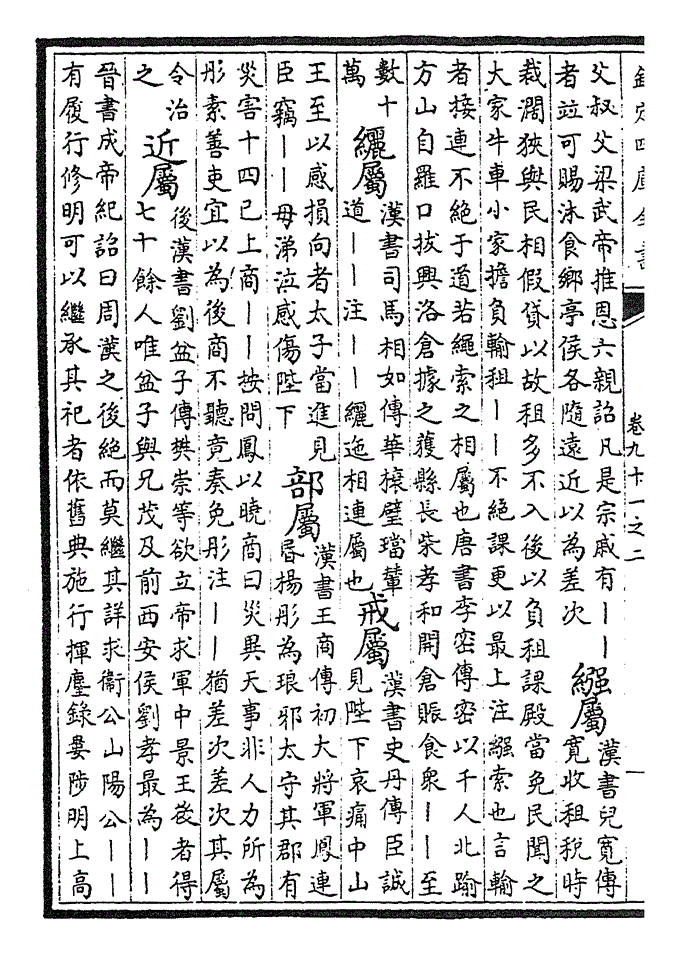 欽定四庫全書
卷九十一之二
父叔父梁武帝推恩六親詔凡是宗戚有——
者竝可賜沐食鄉亭侯各隨遠近以為差次
繈屬
漢書兒寛傳
寛收租稅時
裁濶狹與民相假貸以故租多不入後以負租課殿當免民聞之
大家牛車小家擔負輸租——不絕課更以最上注繈索也言輸
者接連不絕于道若繩索之相屬也唐書李密傳密以千人北踰
方山自羅口拔興洛倉據之獲縣長柴孝和開倉賑食衆——至
數十
萬
纚屬
漢書司馬相如傳華榱璧璫輦
道——注——纚迤相連屬也
戒屬
漢書史丹傳臣誠
見陛下哀痛中山
王至以感損向者太子當進見
臣竊——毋涕泣感傷陛下
部屬
漢書王商傳初大將軍鳳連
昏楊彤為琅邪太守其郡有
災害十四已上商——按問鳳以曉商曰災異天事非人力所為
彤素善吏宜以為後商不聽竟奏免彤注——猶差次差次其屬
令治
之
近屬
後漢書劉盆子傳樊崇等欲立帝求軍中景王後者得
七十餘人唯盆子與兄茂及前西安侯劉孝最為——
晉書成帝紀詔曰周漢之後絕而莫繼其詳求衞公山陽公——
有履行修明可以繼承其祀者依舊典施行揮麈錄婁陟明上高